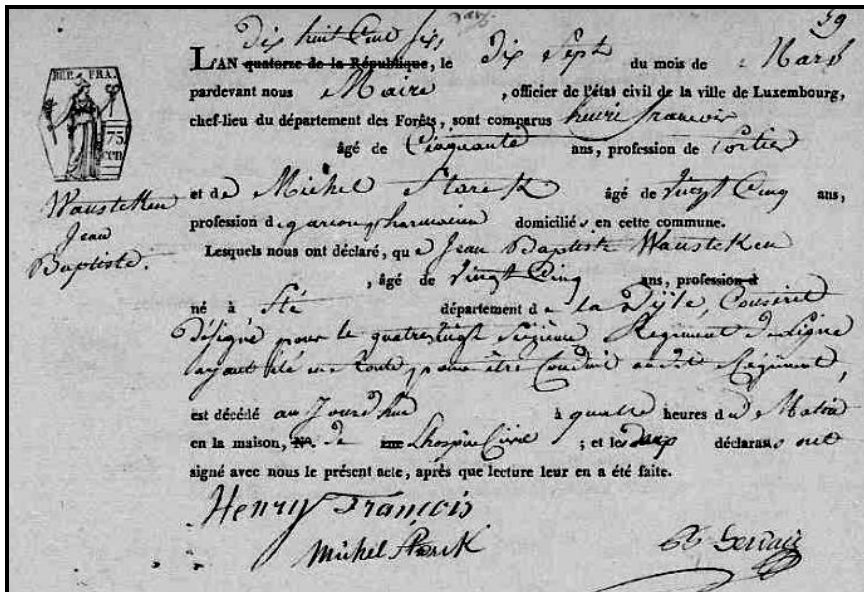 59
dix huit Cent six
L'AN quatorze de la République, le dix Sept du mois de Mars
pardevant nous Maire , officier de l'état civil de la ville de Luxembourg,
chef-lieu du département des Forêts, sont comparus henri francois
âgé de Cinquante ans, profession de Portier
et de Michel Starck âgé de vingt Cinq ans,
profession de garçon pharmacien domiciliés en cette commune.
Lesquels nous ont déclaré, que Jean Baptiste Wausteken
, âgé de vingt Cinq ans, profession d
né à Sté département de la Dyle, Conscrit
désigné pour le quatrevingt Seizieme Regiment de Ligne
ayant été en Route, pour être Conduit audit Régiment,
est décédé aujourd'hui à quatre heures du Matin
en la maison, N.º de rue Lhospice Civil ; et les deux déclarans ont
signé avec nous le présent acte, après que lecture leur en a été faite.
Henry François
Michel Starck
REP. FRA.
75
Wausteken
Jean
Baptiste.